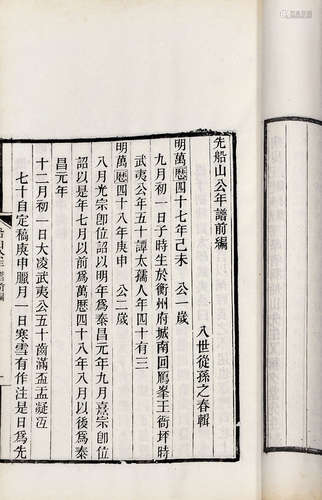 先船山公年譜前編
八世從孫之春輯
明萬曆四十七年己未 公一歲
九月初一日子時生於衡州府城南回鴈峯王衙坪時
武夷公年五十譚太孺人年四十有三
明萬曆四十八年庚申 公二歲
八月光宗卽位詔以明年為泰昌元年九月熹宗卽位
詔以是年七月以前為萬曆四十八年八月以後為泰
昌元年
十二月初一日大凌武夷公五十齒滿盃盂凝冱
七十自定稿庚申臘月一日寒雪有作注是日為先